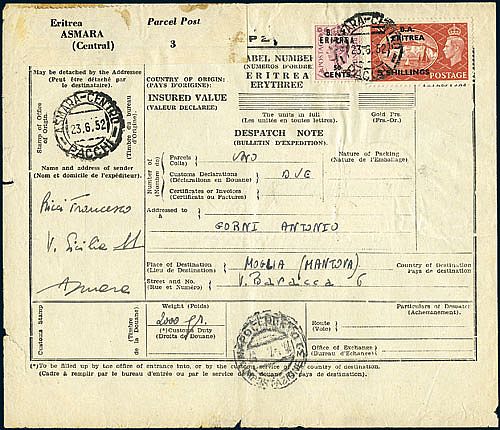 Eritrea
ASMARA
(Central)
Parcel Post
3
LABEL NUMBER
(NUMEROS D'ORDRE)
ERITREA
ERYTHREE
B.A.
ERITREA
CENTS
B.A.
ERITREA
2 SHILLINGS
POSTAGE
May be detached by the Addressee
(Peut être détaché par
le destinataire).
Stamp of Office
of Origin.
(Timbre du bureau
d'Origine).
ASMARA-CENTRO
23.6.52
PACCHI
23.6.52
COUNTRY OF ORIGIN:
(PAYS D'ORIGINE):
INSURED VALUE
(VALEUR DECLAREE)
The units in full
(Les unités en toutes lettres).
Gold Frs.
(Frs.-Or.)
DESPATCH NOTE
(BULLETIN D'EXPEDITION).
Name and address of sender
(Nom et domicile de l'expéditeur).
Number of
(Nombre de)
Parcels
(Colis)
UNO
Nature of Packing
(Nature de l'Emballage)
Customs Declarations
(Déclarations en Douane)
DUE
Certificates or Invoices
(Certificats ou Factures)
Addressed to
à
GORNI ANTONIO
Francesco
V. Sicilia
Asmara
Place of Destination
(Lieu de Destination)
MOGLIA (MANTOVA)
Country of Destination
Pays de destination
Street and No.
(Rue et Numéro)
V. Baracca 6
Customs Stamp
(Timbre
de la Douane)
Weight (Poids)
2000 gr.
(*)Customs Duty
(Droits de Douane)
Particulars of Despatch
(Achemenement).
Route
(Voie)
Office of Exchange
(Bureau d'Echange)
(*)To be filled up by the office of entrance into, or by the customs service of the country of destination.
(Cadre à remplir par le bureau d'entrée ou par le service de la douane du pays de destination).